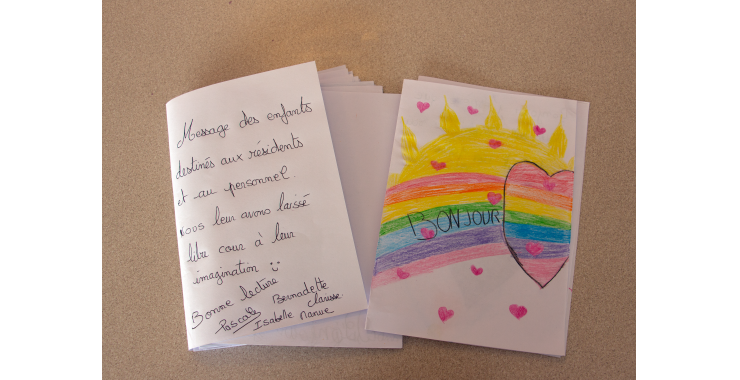 Message des enfants
destinés aux résidents
et au personnel.
nous leur avons laissé
libre cour à leur
imagination :)
Bonne lecture
Pascale Bernadette
Isabelle Clarisse
BONJOUR